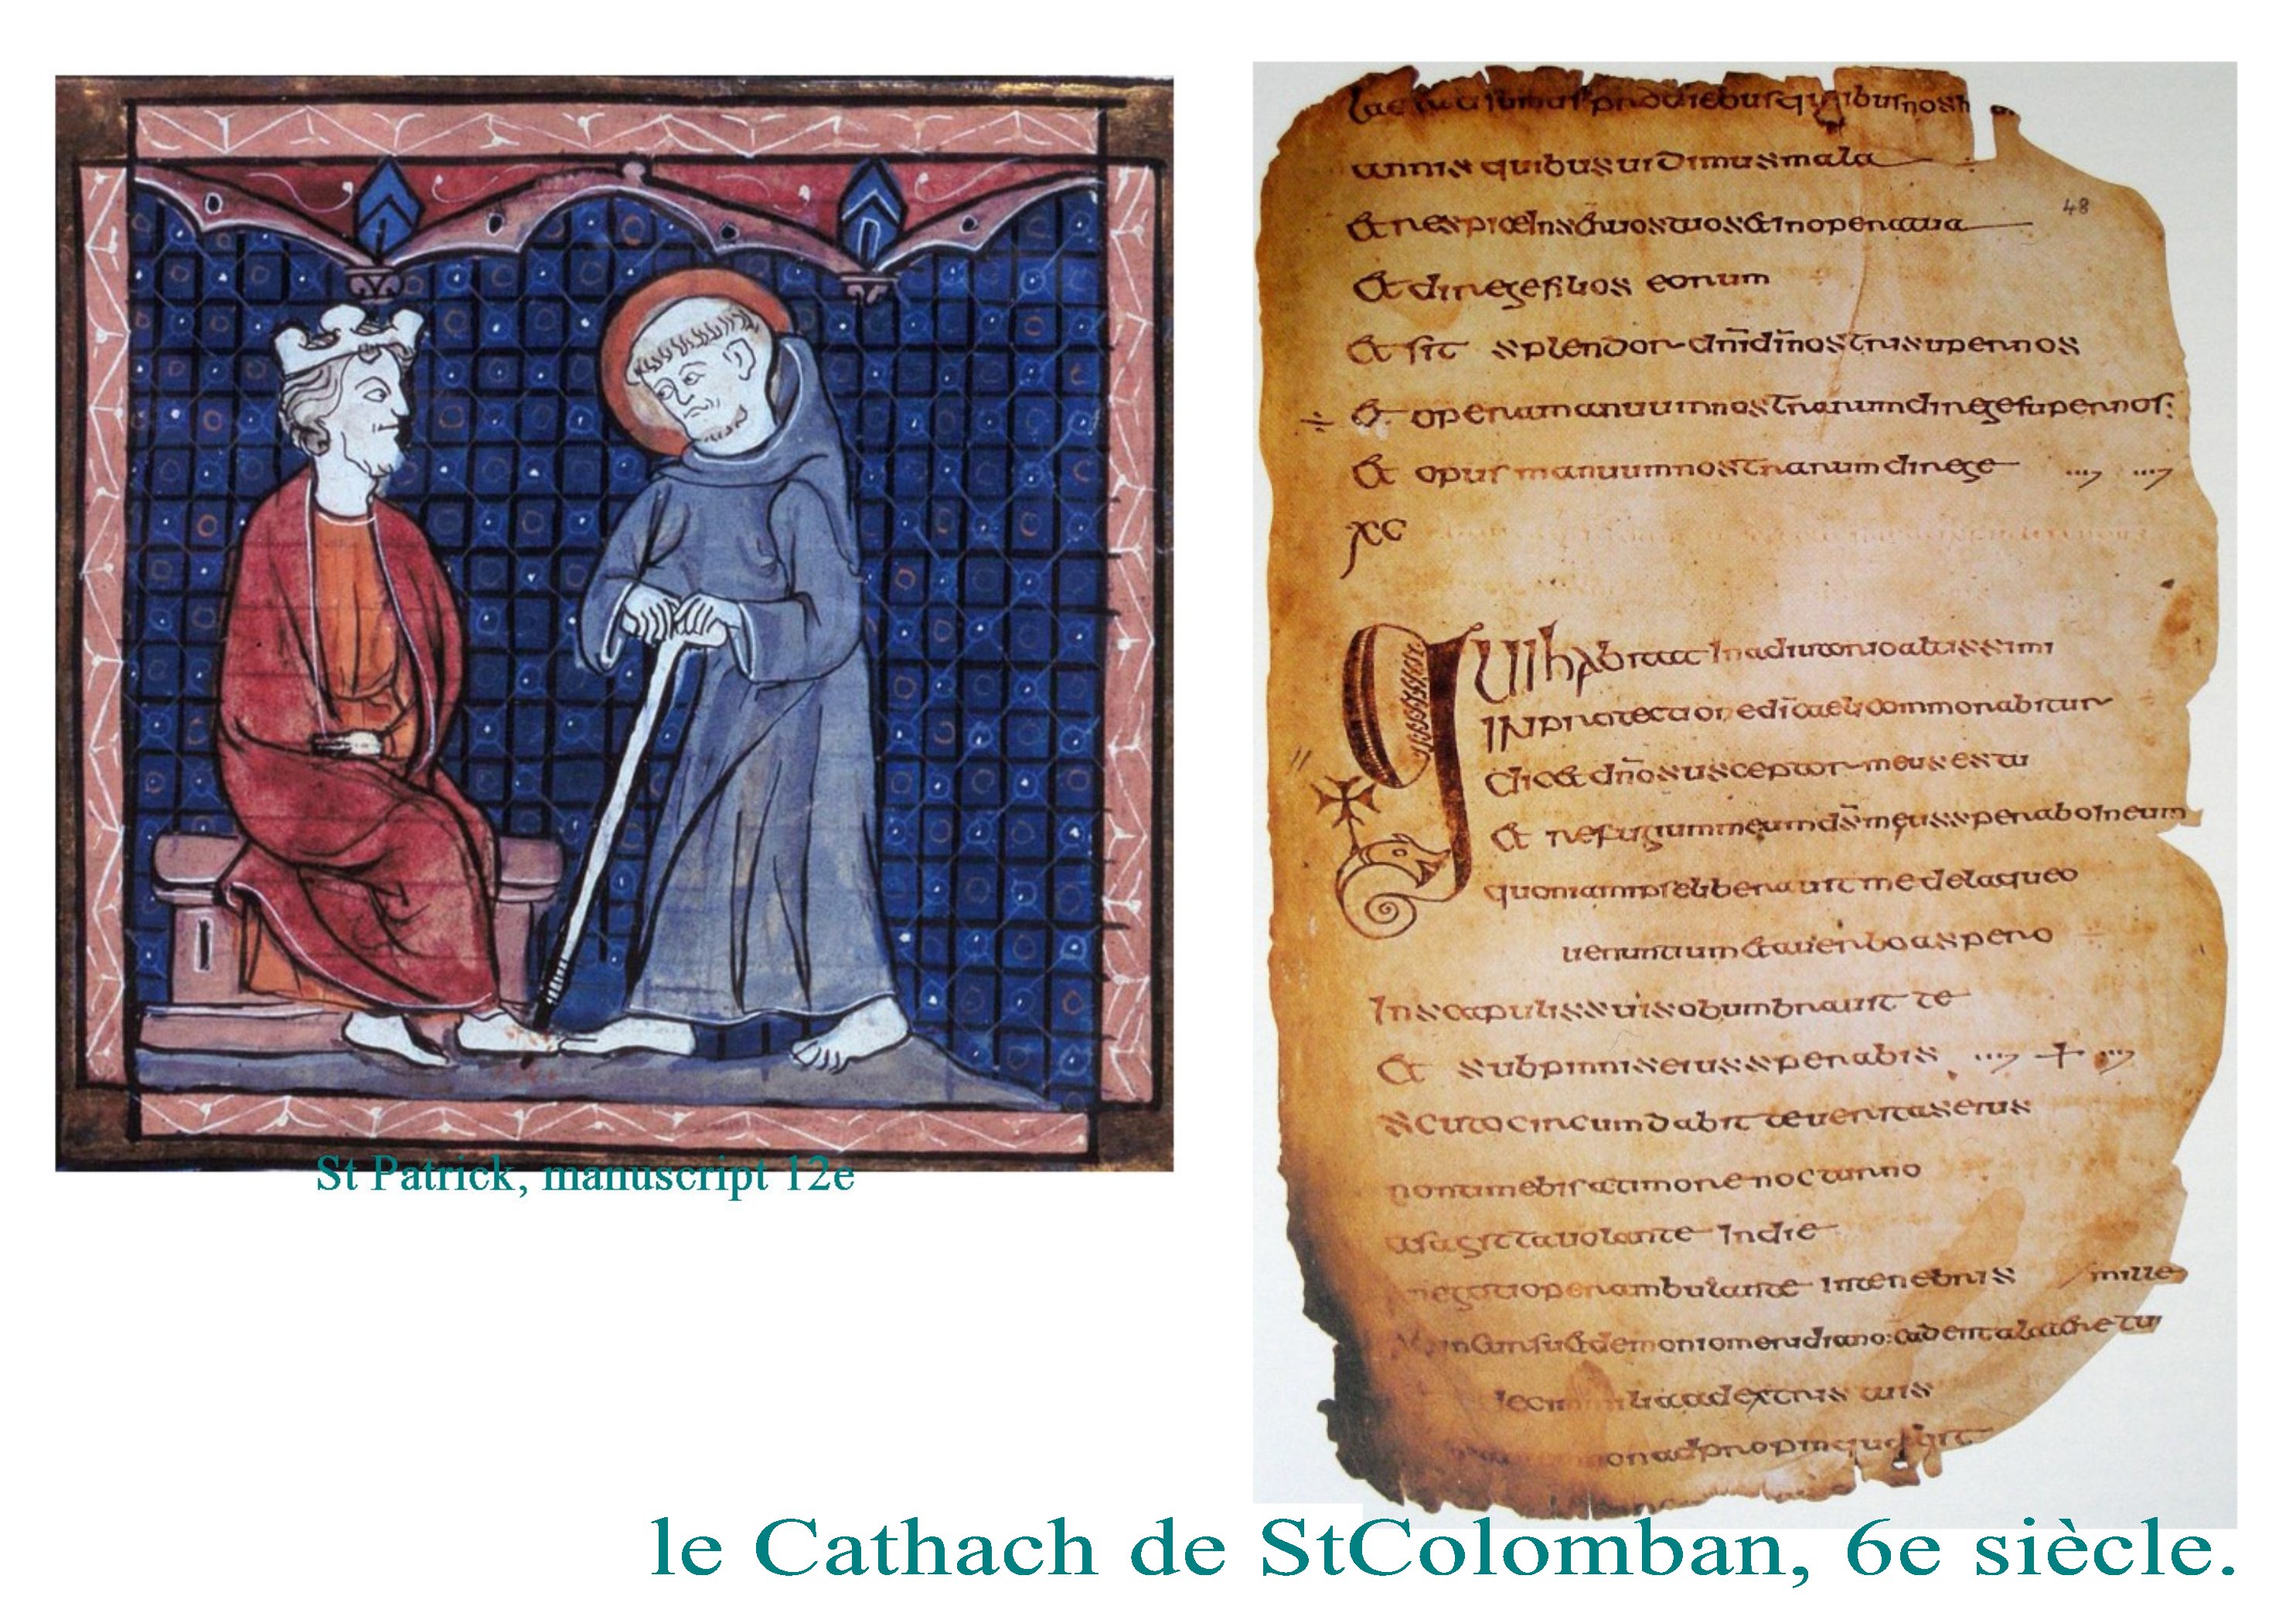 St Patrick, manuscript 12e
annis quibus uidimus mala
48
Et respice in seruos tuos et in opera tua
Et dirige filios eorum
Et sit splendor dn̄i dī nostri super nos
÷ et opera manuum nostrarum dirige super nos:
Et opus manuum nostrarum dirige
xc
Qui habitat in adiutorio altissimi
In protectione dī caeli commorabitur
dicet dn̄o susceptor meus es tu
Et refugium meum ds̄ meus sperabo in eum
quoniam ipse liberauit me de laqueo
uenantium et a uerbo aspero
In scapulis suis obumbrauit te
Et sub pinnis eius sperabis
Scuto circumdabit te ueritas eius
non timebis a timore nocturno
a sagitta uolante in die
negotio perambulante in tenebris mille
et demonio meridiano: cadent a latere tu
dextris tuis
le Cathach de StColomban, 6e siècle.